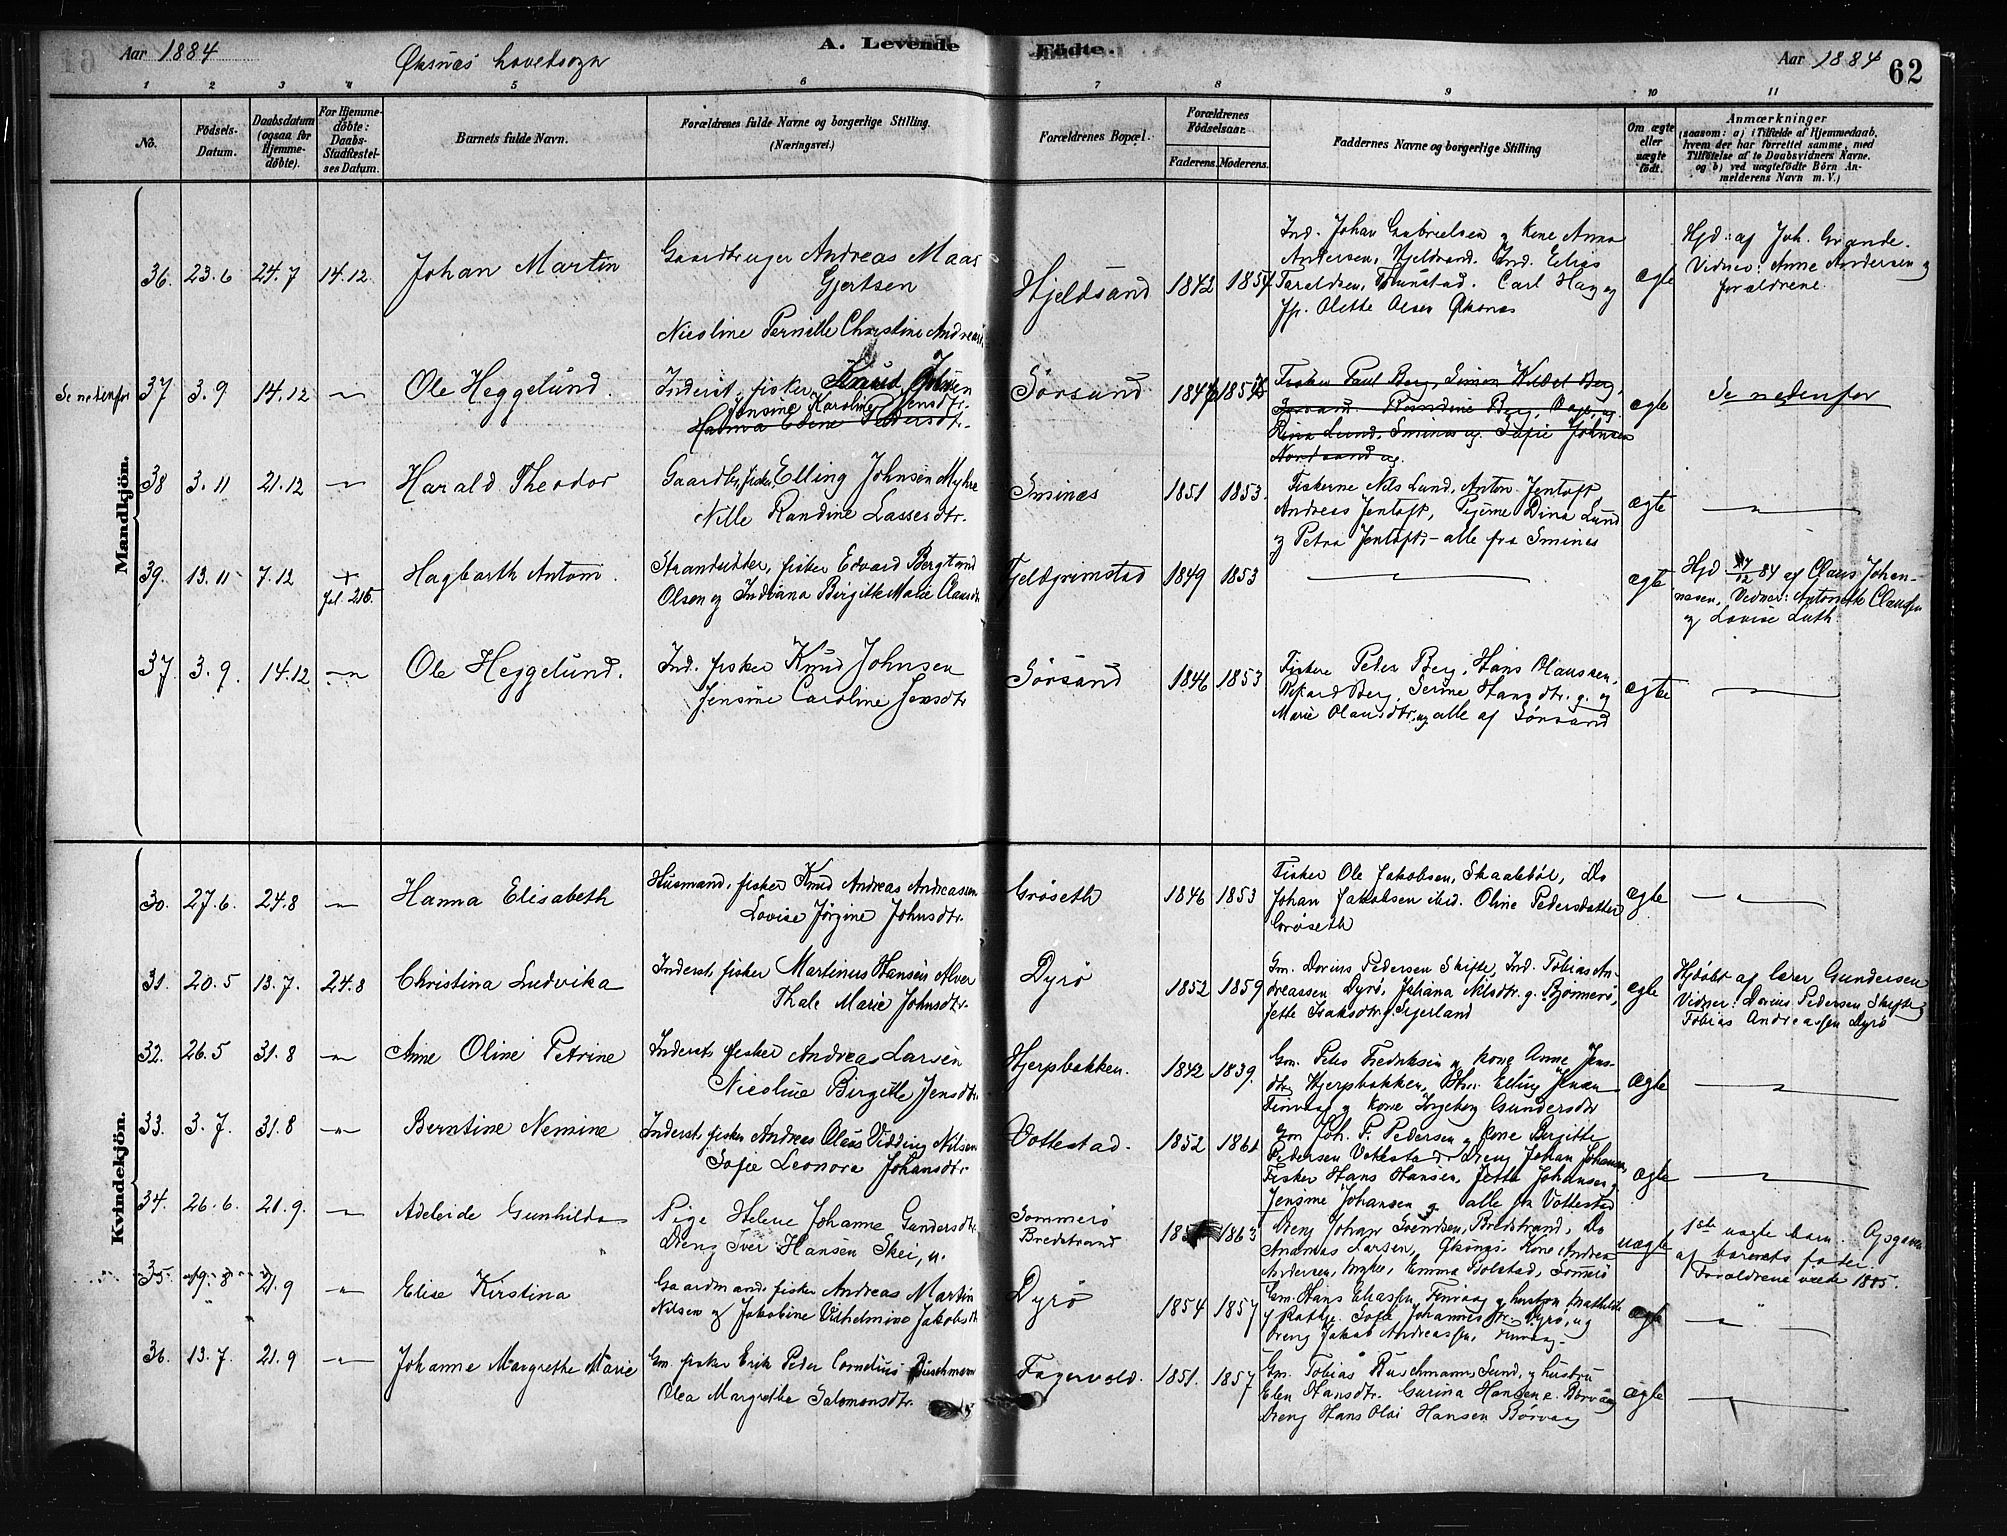 Aar 1884
Øksnes hovedsogn
A. Levende
Fødte.
Aar 1884
62
1 2 3 4 5 6 7 8 9 10 11
No.
Fødsels-
Datum.
Daabsdatum
(ogsaa for
Hjemme-
døbte).
For Hjemme-
døbte:
Daabs-
Stadfæstel-
ses Datum.
Barnets fulde Navn.
Forældrenes fulde Navne og borgerlige Stilling.
(Næringsvei.)
Forældrenes Bopæl.
Forældrenes
Fødselsaar.
Faderens. Moderens.
Faddernes Navne og borgerlige Stilling
Om ægte
eller
uægte
født.
Anmærkninger
(saasom: a) i Tilfælde af Hjemmedaab,
hvem der har forrettet samme, med
Tilføielse af to Daabsvidners Navne.
og b) ved uægtefødte Børn An-
melderens Navn m. V.)
Mandkjön.
36. 23.6 24.7 14.12 Johan Martin
Gaardbruger Andreas Maas
Gjertsen
Nicoline Pernille Christine Andreas
Hjeldsand 1842 1854
Ind. Johan Gabrielsen og Kone Anna
Andersen, Hjeldsand. Ind. Elias
Taraldsen, Tunstad. Carl Hag og
Jfr. Olette Olsen Øksnes
ægte
Hjd. af Joh. Grande.
Vidner: Anne Andersen og
forældrene
Se nedenfor
37 3.9 14.12 — Ole Heggelund.
Inderst, fisker Knud Johnsen
Jensine Karoline Jensdtr.
Hanna Edene Pedersdtr.
Sørsand
Fisker Paul Berg, Simon Berg,
Sørsand Berg,
Dina Lund, Smines og Sofie Johnsen
Nordsand og
ægte
Se nedenfor
38 3.11 21.12 — Harald Theodor
Gaardbr, fisker, Elling Johnsen Myhre
Nille Randine Lassesdtr.
Sminæs 1851 1853.
Fiskerne Nils Lund, Anton Jentoft
Andreas Jentoft, Pigerne Dina Lund
og Petra Jentoft, – alle fra Smines
ægte
39. 13.11 7.12 + fol 215. Hagbarth Antoni.
Strandsidder, fisker Edvard Bergland
Olsen og Indiana Birgitte Marie Clausdtr
Fjeldgrimstad 1849 1853
ægte
Hjd 7/12 84 af Claus Johan-
nesen, Vidner: Antonette Clausen
og Lovise Luth.
37. 3.9. 14.12 — Ole Heggelund.
Ind. fisker Knud Johnsen
Jensine Caroline Jensdtr
Sørsand 1846 1853
Fiskere Peder Berg, Hans Olaussen,
Rikard Berg, Serine Hansdtr. g. og
Marie Olausdtr, ug alle af Sørsand
ægte
Kvindekjön.
30. 27.6. 24.8 — Hanna Elisabeth
Husmand, fisker Knud Andreas Andreassen
Lovise Jørgine Johnsdtr.
Grøseth 1846 1853
Fisker Ole Jakobsen, Skaalebøl, Do
Johan Jakobsen ibid. Oline Pedersdatter
Grøseth
ægte
31. 20.5 13.7. 24.8 Christina Ludvika
Inderst, fisker Martinus Hansen Alver
Thale Marie Johnsdtr.
Dyrø 1852 1859
Gm. Dorius Pedersen Skifte, Ind. Tobias An-
dreassen Dyrø, Juliana Nilsdtr. g. Bjørnerø,
Jette Isaksdtr,
ægte
Hjdøbt af lærer Gundersen
Vidner: Dorius Pedersen Skifte og
Tobias Andreassen Dyrø
32. 26.5 31.8 — Anne Oline Petrine
Inderst, fisker Andreas Larsen
Nicoline Birgitte Jensdtr
Hjerpbakken. 1842 1839.
Gm. Peter Fredriksen og kone Anne Jens-
dtr, Hjerpbakken, Elling Jensen
Finvaag og kone Ingeborg Gundersdtr
ægte
33. 3.7. 31.8 — Berntine Nemine
Inderst, fisker Andreas Olaus Vidding Nilsen
Sofie Leonore Johansdtr
Vottestad. 1852 1861
Gm Joh. P. Pedersen og kone Birgitte
Pedersen Vottestad, Dreng Johan Johansen,
Fisker Hans Hansen, Jette Johansen og
Jensine Johansen g. alle fra Vottestad
ægte
34. 26.6. 21.9. — Adeleide Gunhilda
Pige Helene Johanne Gundersdtr.
Dreng Iver Hansen Skei, u.
Sommerø
Bredstrand 1863
Dreng Johan Svendsen, Bredstrand, Do
Ananias Larsen, Kone Andrea
Andersen, Emma Bolstad, Sommerø
uægte
1ste uægte barn. Opgaven
af barnets fader.
Forældrene viede 1885.
35. 19.8 21.9 — Elise Kirstina
Gaardmand, fisker Andreas Martin
Nilsen og Jakobine Vilhelmine Jakobsdtr
Dyrø 1854 1857
Gm. Hans Eliassen, Finvaag og hustru Mathilde
Sofie Johannesdtr Dyrø, ug
Dreng Jakob Andreassen, Finvaag
ægte
36. 13.7. 21.9 — Johanne Margrethe Marie
Gm. fisker Erik Peder Cornelius Buschmann
Olea Margrethe Salomonsdtr.
Fagervold. 1851. 1857
Gm. Tobias Buschmann, Sund, og hustru
Elen Hansdtr. Gurina Hansen e. Børvaag
Dreng Hans Olai Hansen Børvaag
ægte